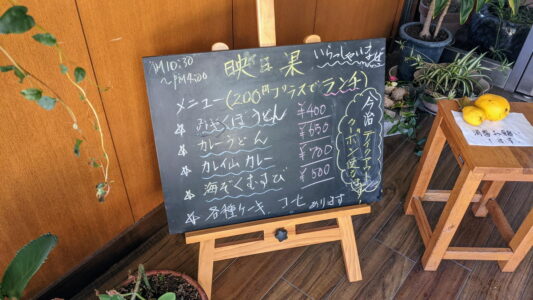 AM10:30
~PM4:00
映日果
いらっしゃいませ
メニュー(200円プラスでランチ)
みそくぼうどん ¥400
カレーうどん ¥650
カレイム カレー ¥700
海ぞくむすび ¥500
各種ケーキ、コーヒーあります
今治
テイクアウト
クーポン使えます